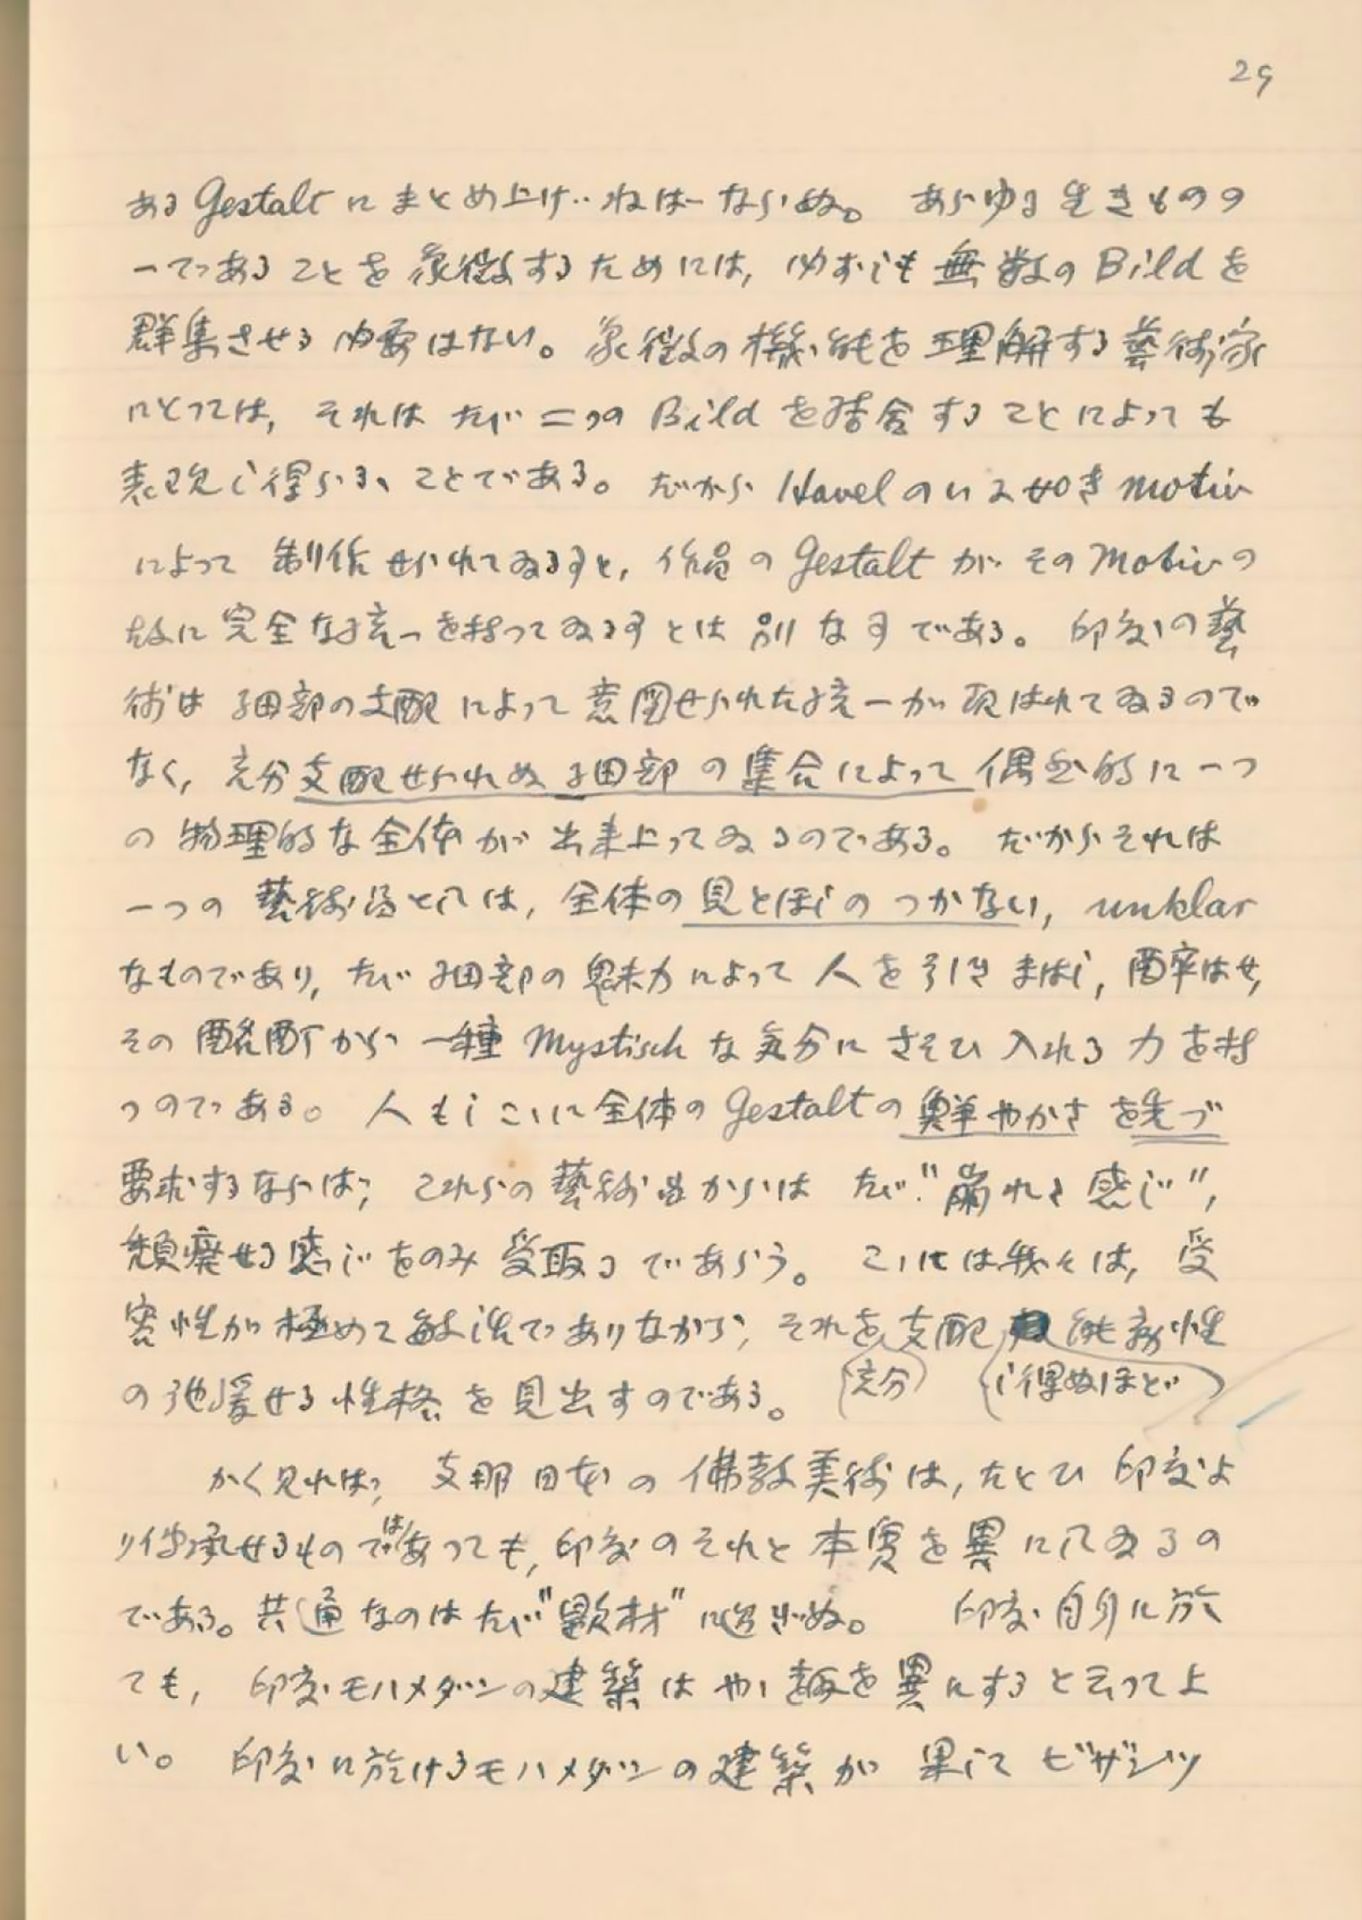 29
ある Gestalt にまとめ上げねばならぬ。あらゆる生きものの
一であることを象徴するためには, 必ずしも無数の Bild を
群集させる必要はない。象徴の機能を理解する藝術家
にとつては, それはたゞ二つの Bild を結合することによっても
表現し得らるゝことである。だから Havel のいふ如き motiv
によって制作せられてゐる事と, 作品の Gestalt がその Motiv の
故に完全な統一を持ってゐる事とは別な事である。印度の藝
術は細部の支配によって意図せられた統一が現はれてゐるので
なく, 充分支配せられぬ細部の集合によって偶然的に一つ
の物理的な全体が出来上ってゐるのである。だからそれは
一つの藝術品としては, 全体の見とほしのつかない, unklar
なものであり, たゞ細部の魅力によって人を引きまはし, 酔はせ,
その酩酊から一種 Mystisch な気分にさそひ入れる力を持
つのである。人もしこゝに全体の Gestalt の鮮やかさを先づ
要求するならば, これらの藝術品からはたゞ"崩れた感じ",
頽廃せる感じをのみ受取るであらう。こゝには我々は, 受
容性が極めて敏活でありながら, それを充分支配し得ぬほど能動性
の弛緩せる性格を見出すのである。
かく見れば, 支那日本の佛教美術は, たとひ印度よ
り伝承せるものではあっても, 印度のそれと本質を異にしてゐるの
である。共通なのはたゞ"題材"に過ぎぬ。印度自身に於
ても, 印度モハメダンの建築はやゝ趣を異にすると云って よ
い。印度に於けるモハメダンの建築が果してビザンツ